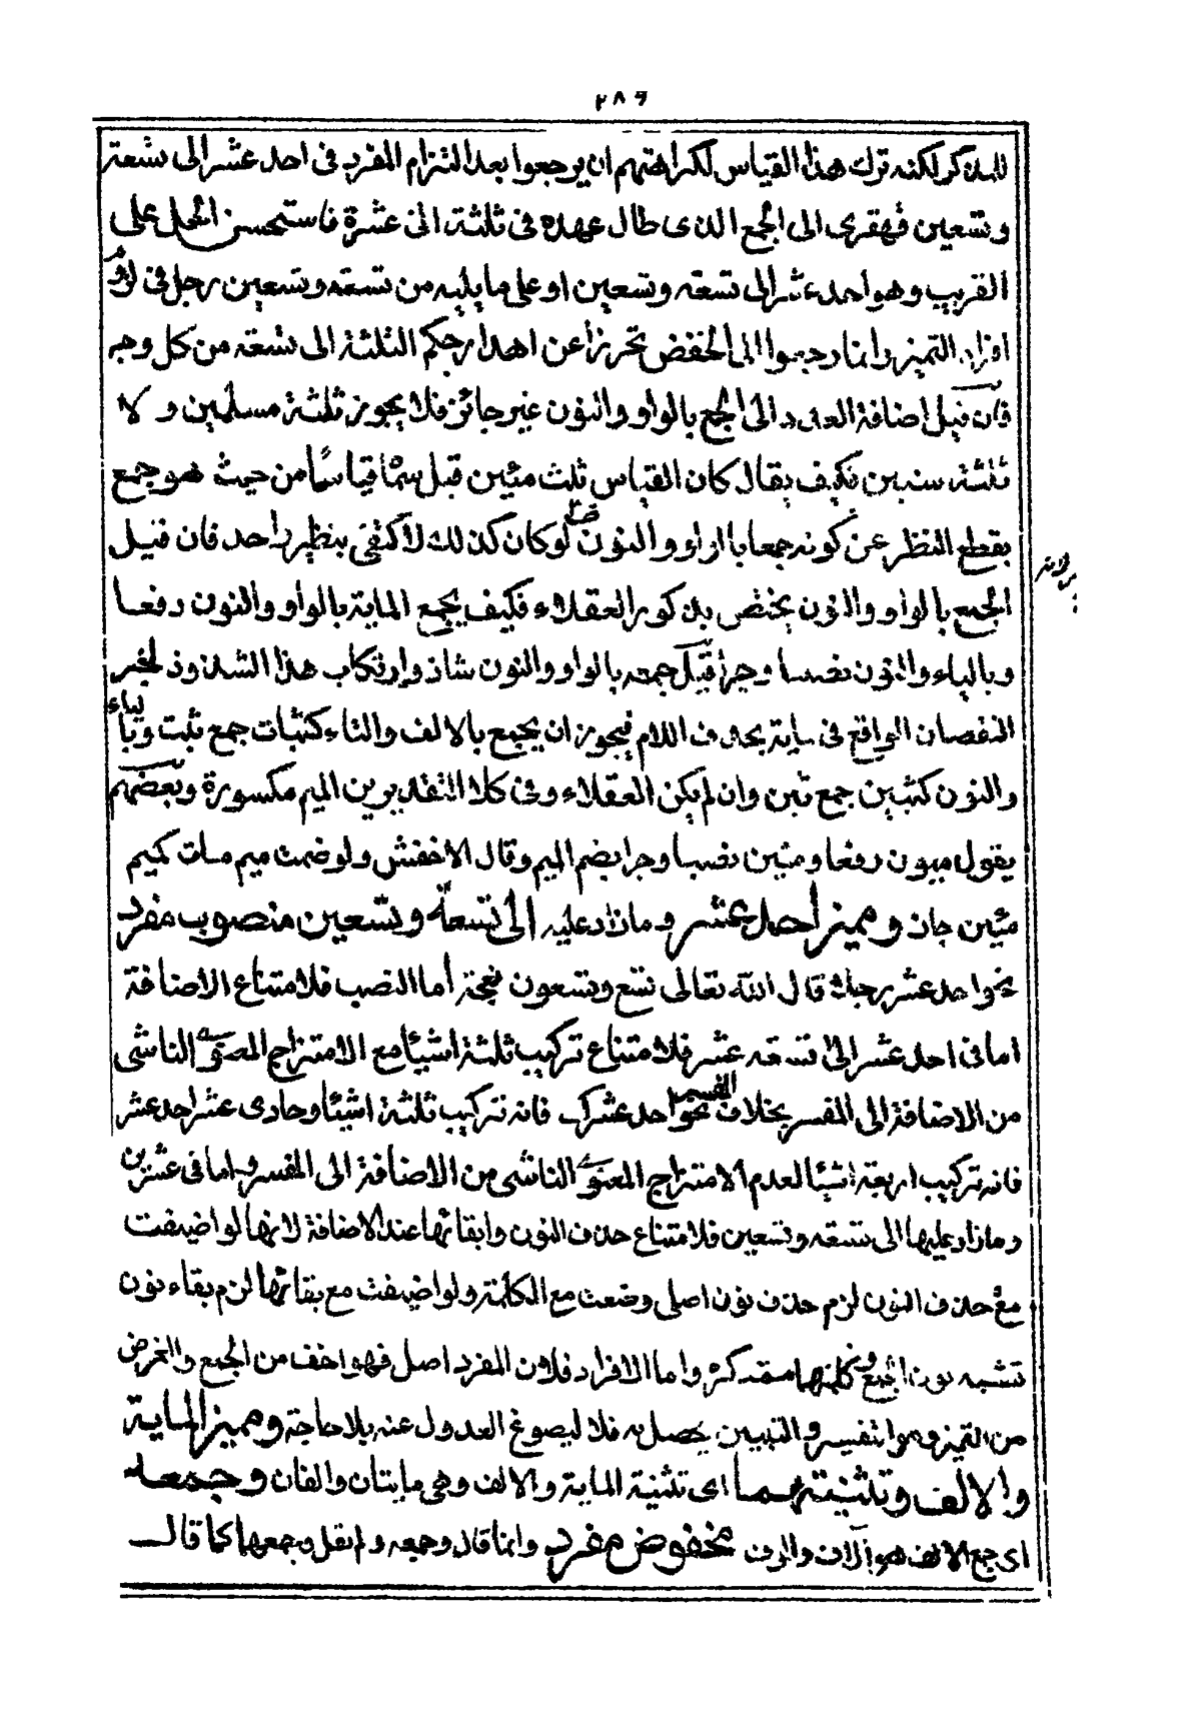 ٢٨٩
للمذكر لكنه ترك هذا القياس لكراهتهم ان يرجعوا بعد التزام المفرد فى احد عشر الى تسعة
وتسعين قهقرى الى الجمع الذى طال عهده فى ثلثة الى عشرة فاستحسن الحمل على
القريب وهو احد عشر الى تسعة وتسعين او على ما يليه من تسعة وتسعين رجل فى
افراد التميز وانما رجعوا الى الخفض تحرزا عن اهدار حكم الثلثة الى تسعة من كل وجه
فان قيل اضافة العدد الى الجمع بالواو والنون غير جائز فلا يجوز ثلثة مسلمين ولا
ثلثة سنين فكيف يقال كان القياس ثلث مئين قيل قياسا من حيث هو جمع
بقطع النظر عن كونه جمعا بالواو والنون لو كان كذلك لاكتفى بنظير واحد فان قيل
الجمع بالواو والنون يختص بذكور العقلاء فكيف يجمع المایة بالواو والنون رفعا
وبالياء والنون نصبا وجرا قيل جمعه بالواو والنون شاذ وارتكاب هذا الشذوذ لجبر
النقصان الواقع فى مایة بحذف اللام فيجوز ان يجمع بالالف والتاء كثبات جمع ثبت وبالياء
والنون كثبين جمع ثبن وان لم يكن العقلاء وفى كلا التقديرين الميم مكسورة وبعضهم
يقول ميون رفعا ومئين نصبا وجرا بضم الميم وقال الاخفش ولو ضمت ميم مات كميم
مئين جاز ومميز احد عشر وما زاد عليه الى تسعة وتسعين منصوب مفرد
نحو احد عشر رجلا قال الله تعالى تسع وتسعون نعجة أما النصب فلامتناع الاضافة
اما فى احد عشر الى تسعة عشر فلامتناع تركيب ثلثة اشيأ مع الامتزاج المعنوى الناشى
من الاضافة الى المفسر بخلاف نحو احد عشرك فانه تركيب ثلثة اشيأ وحادى عشر احد عشر
فانه تركيب اربعة اشيأ لعدم الامتزاج المعنوى الناشى من الاضافة الى المفسر واما فى عشرين
وما زاد عليها الى تسعة وتسعين فلامتناع حذف النون وابقائها عند الاضافة لانها لو اضيفت
مع حذف النون لزم حذف نون اصلى وضعت مع الكلمة ولو اضيفت مع بقائها لزم بقاء نون
تشبه نون الجمع وكلتهما متعذرة واما الافراد فلان المفرد اصل فهو اخف من الجمع والغرض
من التميز وهو التفسير والتبيين يحصل به فلا ليصوغ العدول عنه بلا حاجة ومميز الماية
والالف وتثنيتهما اى تثنية الماية والالف وهى مايتان والفان وجمعه
اى جمع الالف هو آلاف والوف مخفوض مفرد وانما قال وجمعه ولم يقل وجمعها كما قال